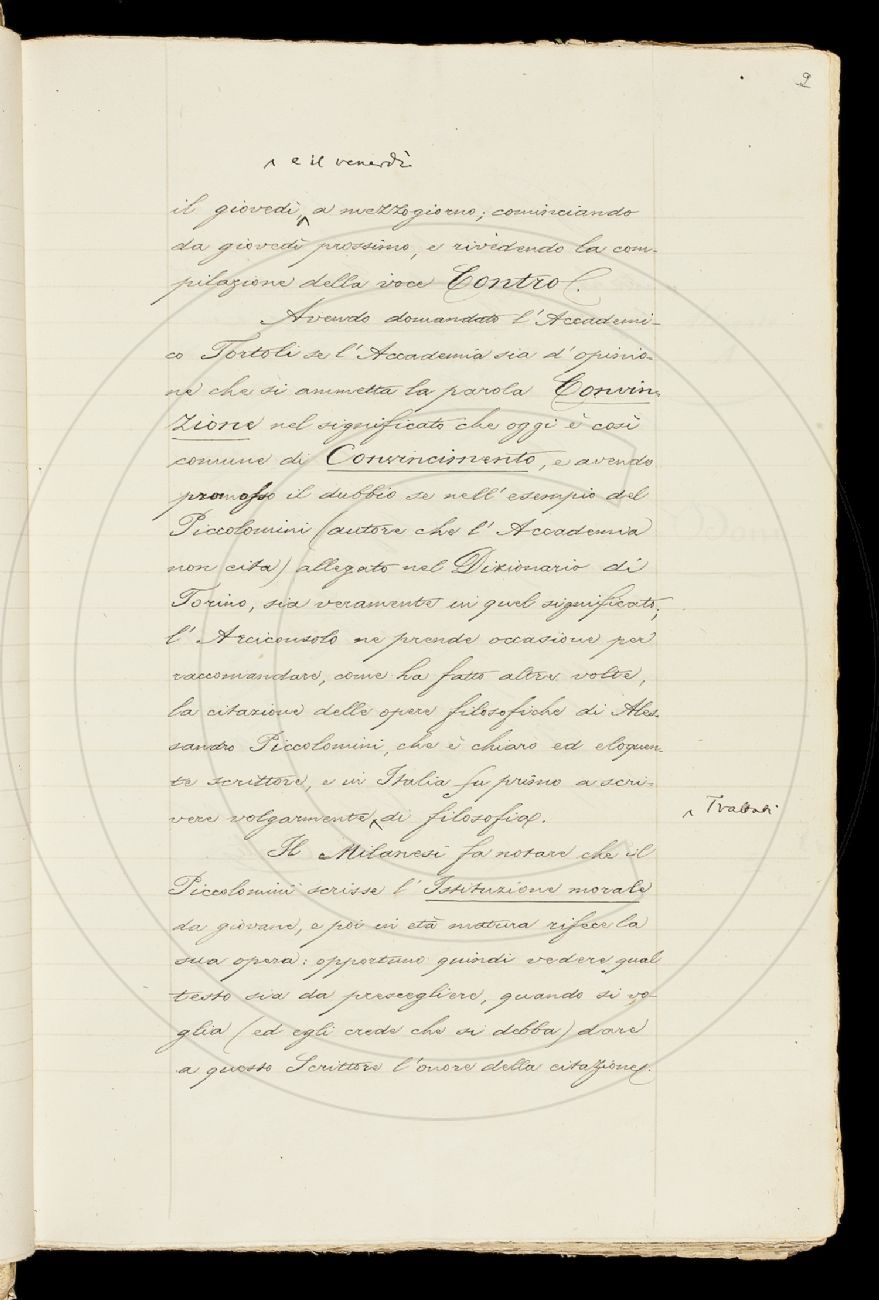 9
^ e il venerdì
il giovedì, ^ a mezzogiorno; cominciando
da giovedì prossimo, e rivedendo la com-
pilazione della voce Contro.
Avendo domandato l'Accademi-
co Tortoli se l'Accademia sia d'opinio-
ne che si ammetta la parola Convin-
zione nel significato che oggi è così
comune di Convincimento, e avendo
promosso il dubbio se nell'esempio del
Piccolomini (autore che l'Accademia
non cita) allegato nel Dizionario di
Torino, sia veramente in quel significato;
l'Arciconsolo ne prende occasione per
raccomandare, come ha fatto altre volte,
la citazione delle opere filosofiche di Ales-
sandro Piccolomini, che è chiaro ed eloquen-
te scrittore, e in Italia fu primo a scri-
vere volgarmente ^ di filosofia.
^ Trattati
Il Milanesi fa notare che il
Piccolomini scrisse l'Istituzione morale
da giovane, e poi in età matura rifece la
sua opera: opportuno quindi vedere qual
testo sia da prescegliere, quando si vo-
glia (ed egli crede che si debba) dare
a questo Scrittore l'onore della citazione.